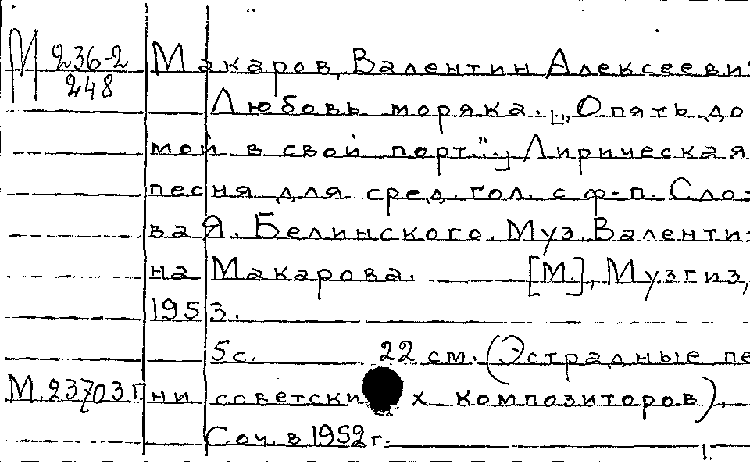 М 236-2/248
Макаров, Валентин Алексееви-
Любовь моряка. [„Опять до-
мой в свой порт."] Лирическая
песня для сред. гол. с ф-п. Сло-
ва Я. Белинского. Муз. Валенти-
на Макарова. [М.], Музгиз,
1953.
5 с. 22 см. (Эстрадные пе
М 23703 г ни советских композиторов).
Соч. в 1952 г.